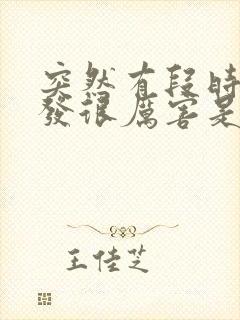 突然有段時
發很厲害是
王佳芝